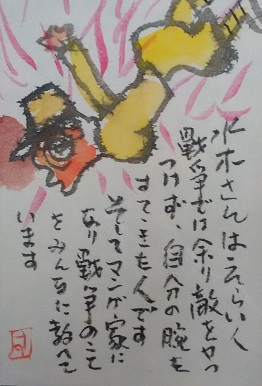 水木さんはえらい人
戦争では余り敵をやっ
つけず、自分の腕を
すてきた人です
そしてマンガ家に
なり戦争のこと
をみんなに教へて
います